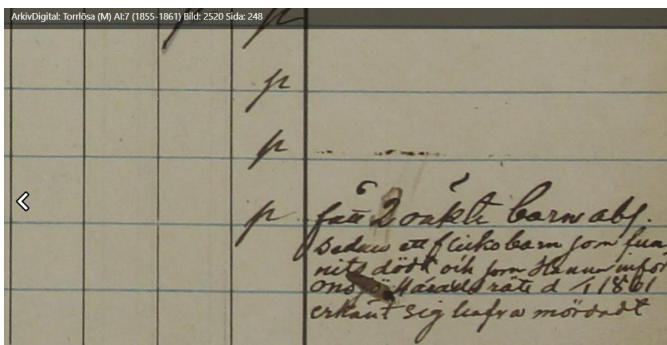 ArkivDigital: Torrlösa (M) AI:7 (1855-1861) Bild: 2520 Sida: 248
p
p
p
p
fått 2 oäkta barn abs.
sedan ett flickobarn som fun
nits dödt och som Hannu inför
Ons Härads rätt d 1861
erkänt sig hafva mördadt